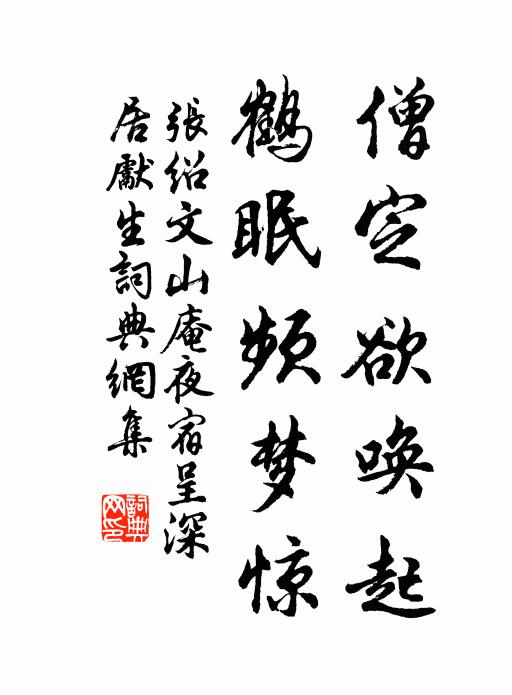 僧定欲唤起
鹤眠频梦惊
張绍文山庵夜宿呈深
居獻生詞典網集
詞典網印